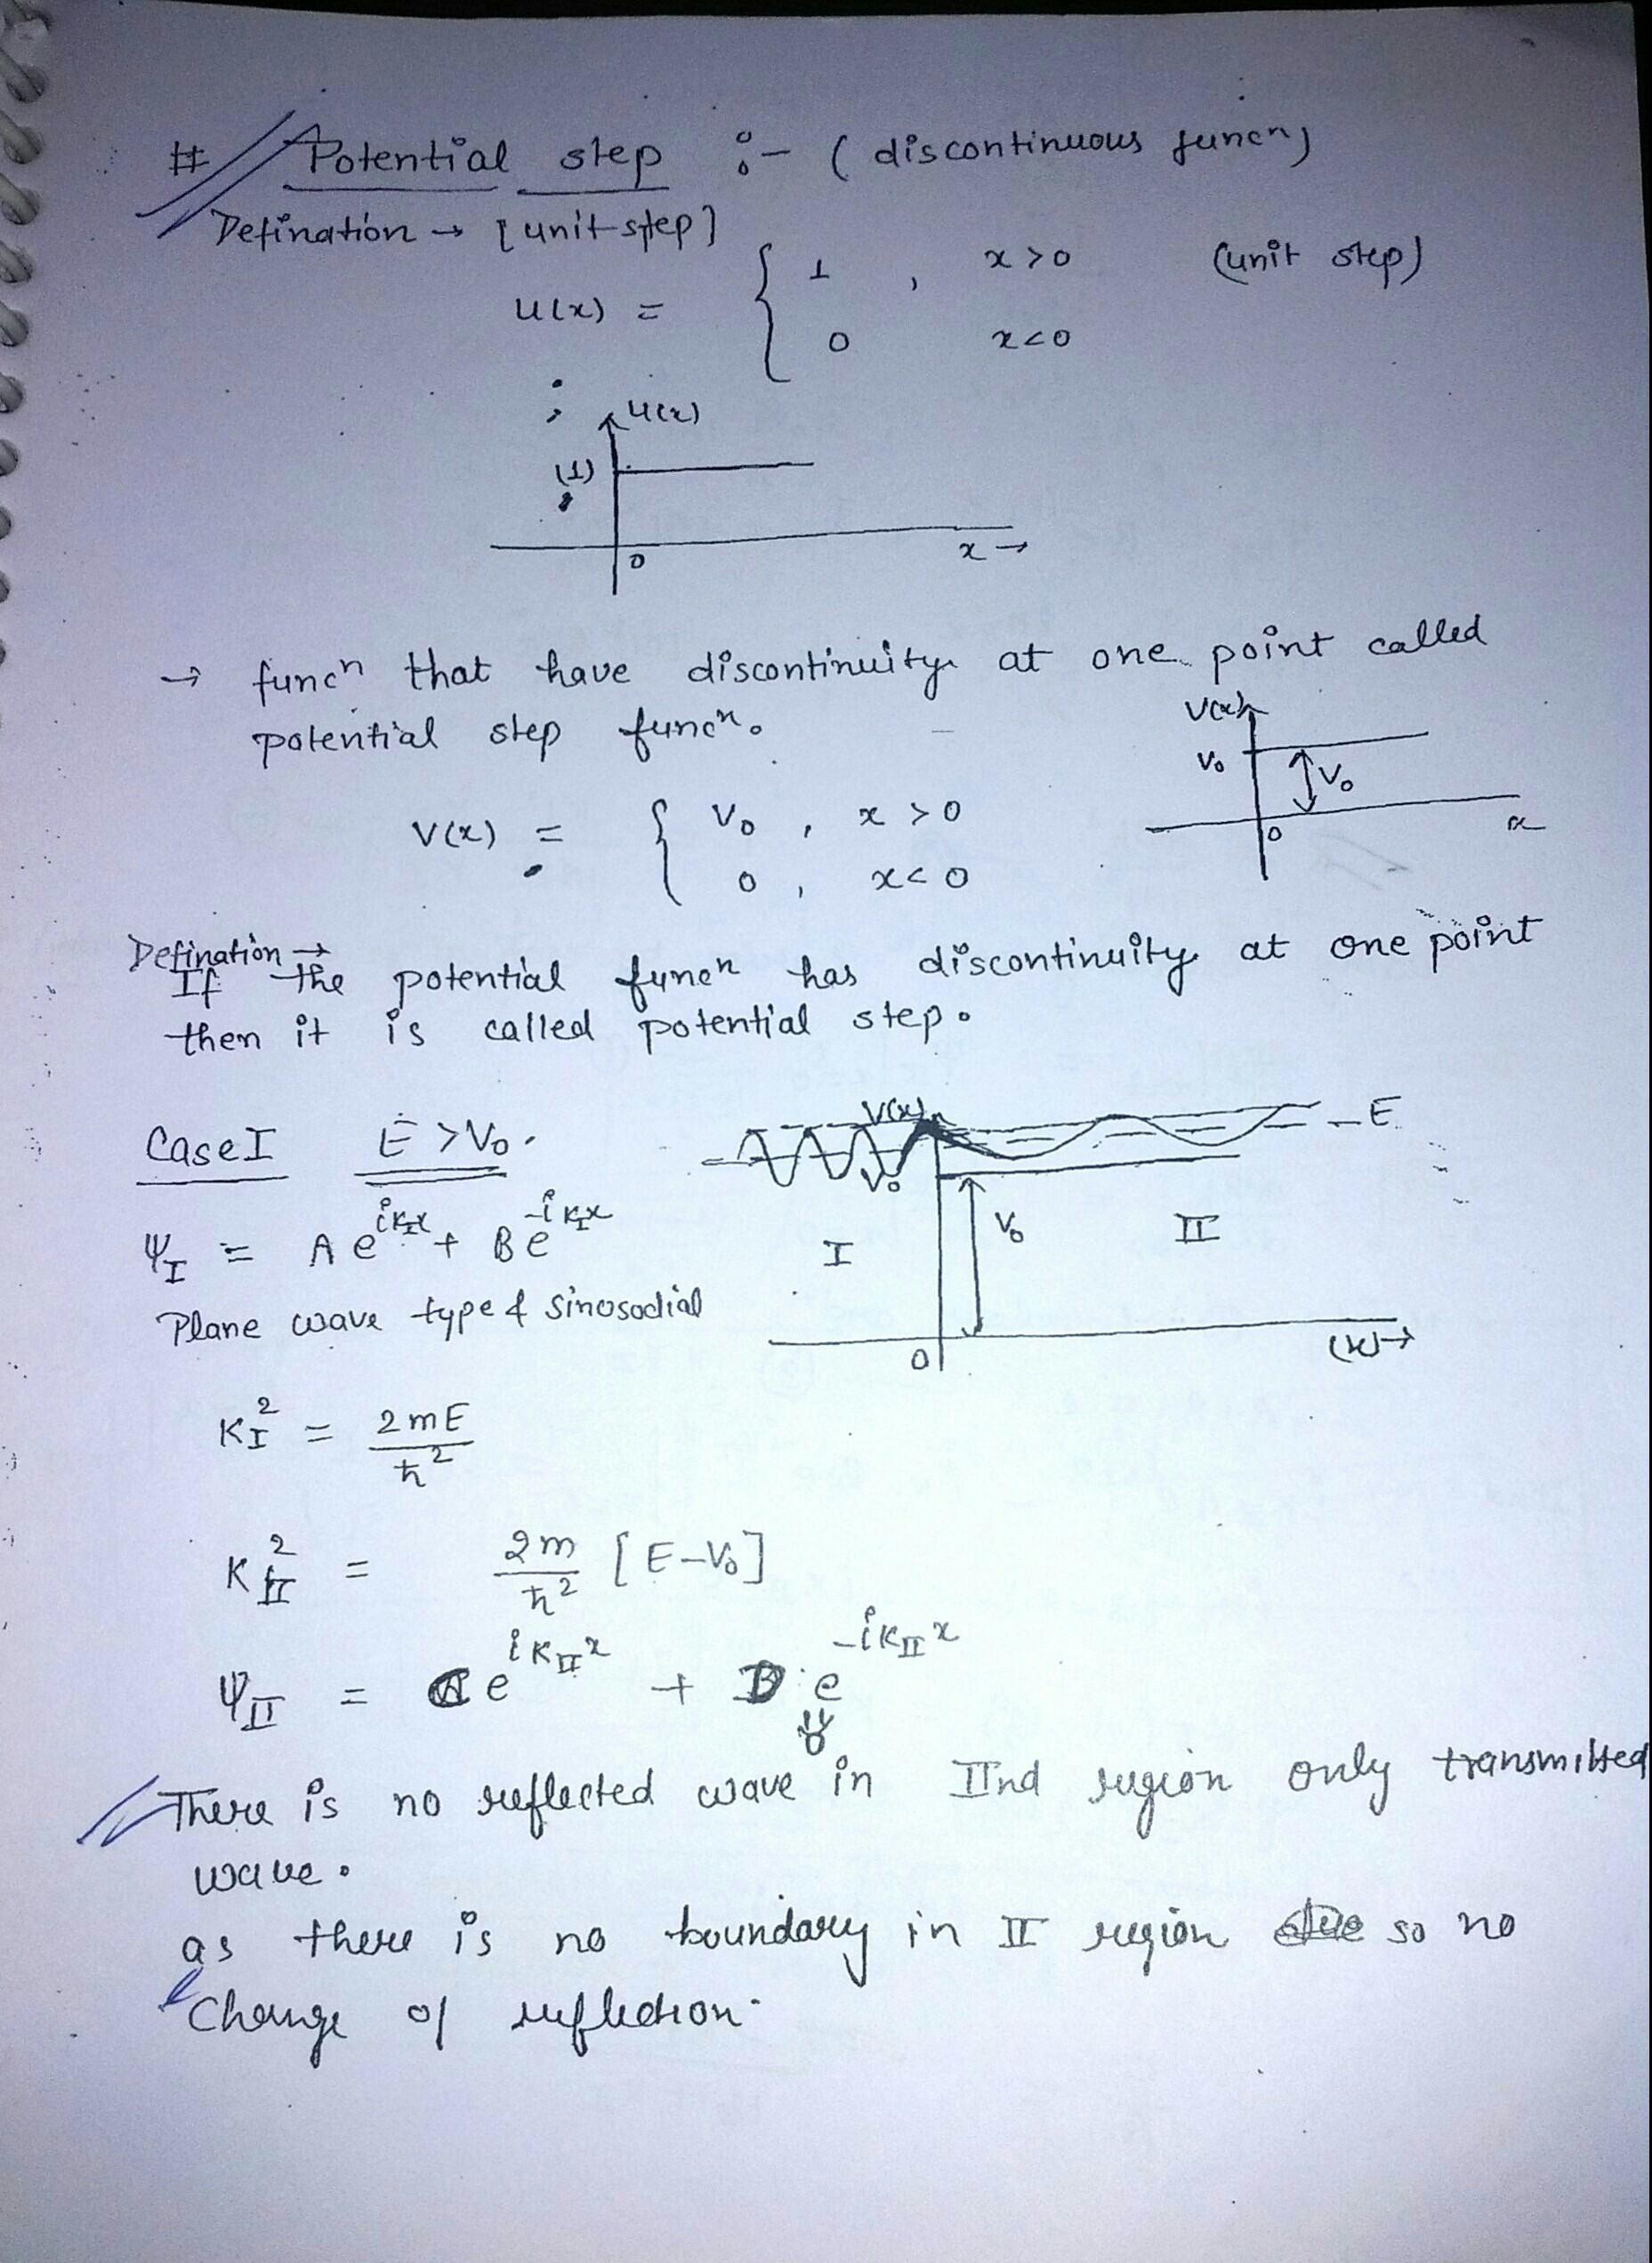 # Potential step :- ( discontinuous funcn)
Defination → [unit step]
u(x) = { 1 , x>0 (unit step)
0 x<0
u(x)
(1)
0 x →
→ funcn that have discontinuity at one point called
potential step funcn.
V(x)
V0 V0
0 x
V(x) = { V0 , x > 0
0 , x < 0
Defination →
If the potential funcn has discontinuity at one point
then it is called potential step.
Case I E > V0.
V(x) E
V0
I V0 II
0 (x)→
ΨI = A e^{iKIx} + B e^{-iKIx}
Plane wave type & sinosodial
KI^2 = 2mE / ħ^2
KII^2 = 2m / ħ^2 [E-V0]
ΨII = C e^{iKIIx} + D e^{-iKIIx}
0
There is no reflected wave in IInd region only transmitted
wave.
as there is no boundary in II region so no
Change of reflection.